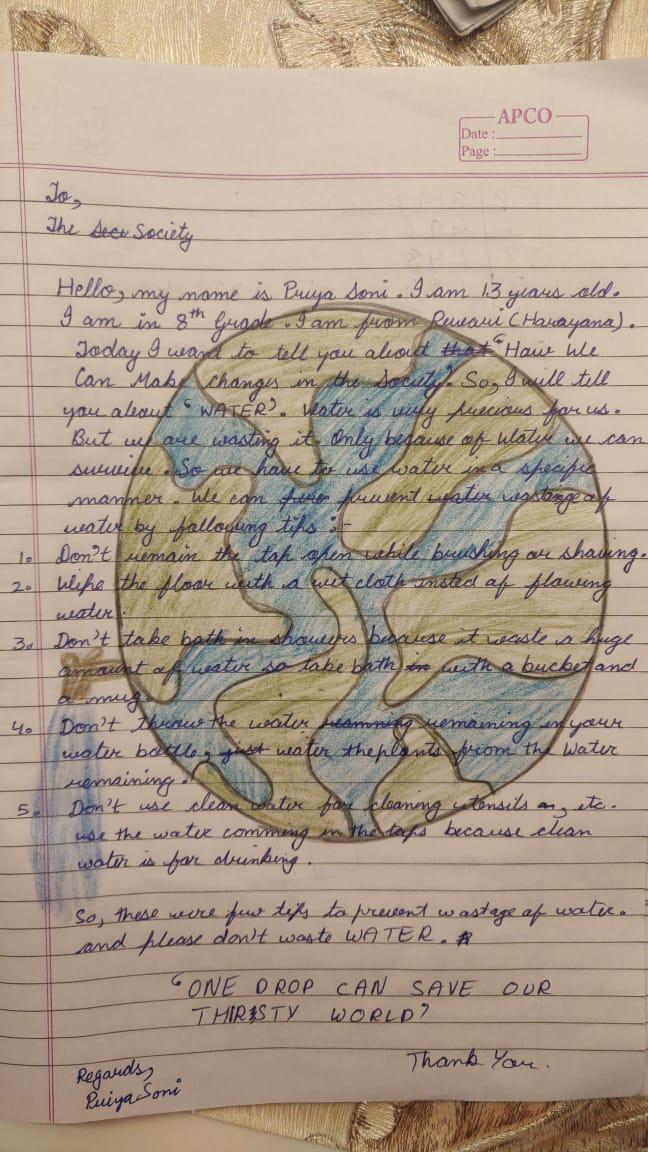 APCO
Date :
Page :
To,
The Society
Hello, my name is Priya Soni. I am 13 years old.
I am in 8th Grade. I am from Rewari (Harayana).
Today I want to tell you about that "How We
Can Make changes in the Society". So, I will tell
you about "WATER". Water is very precious for us.
But we are wasting it. Only because of Water we can
survive. So we have to use water in a specific
manner. We can prevent water wastange of
water by following tips :-
1. Don't remain the tap open while brushing or shaving.
2. Wipe the floor with a wet cloth insted of flowing
water.
3. Don't take bath in showers because it waste a huge
amount of water so take bath in with a bucket and
a mug.
4. Don't throw the water remaining in your
water bottle, just water the plants from the Water
remaining.
5. Don't use clean water for cleaning utensils etc.
use the water comming in the taps because clean
water is for drinking.
So, these were few tips to prevent wastage of water.
and please don't waste WATER.
"ONE DROP CAN SAVE OUR
THIRSTY WORLD"
Thank You.
Regards,
Priya Soni